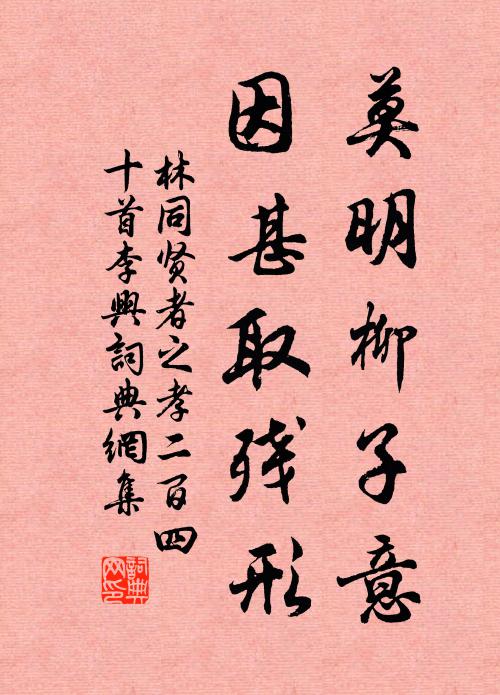 莫明柳子意
因甚取残形
林同贤者之孝二百四
十首李興詞典網集
詞典网印